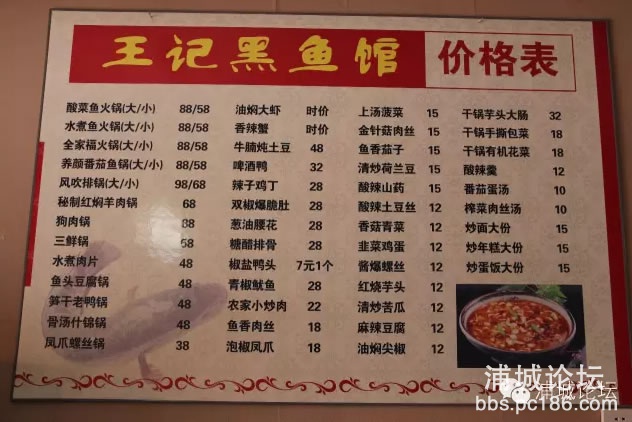 王记黑鱼馆 价格表
酸菜鱼火锅(大/小) 88/58
水煮鱼火锅(大/小) 88/58
全家福火锅(大/小) 88/58
养颜番茄鱼锅(大/小) 88/58
风吹排锅(大/小) 98/68
秘制红焖羊肉锅 68
狗肉锅 88
三鲜锅 58
水煮肉片 48
鱼头豆腐锅 48
笋干老鸭锅 48
骨汤什锦锅 48
凤爪螺丝锅 38
油焖大虾 时价
香辣蟹 时价
牛腩炖土豆 48
啤酒鸭 32
辣子鸡丁 28
双椒爆脆肚 28
葱油腰花 28
糖醋排骨 28
椒盐鸭头 7元1个
青椒鱿鱼 28
农家小炒肉 22
鱼香肉丝 18
泡椒凤爪 18
上汤菠菜 15
金针菇肉丝 15
鱼香茄子 15
清炒荷兰豆 15
酸辣山药 15
酸辣土豆丝 12
香菇青菜 12
韭菜鸡蛋 12
酱爆螺丝 12
红烧芋头 12
清炒苦瓜 12
麻辣豆腐 12
油焖尖椒 12
干锅芋头大肠 32
干锅手撕包菜 18
干锅有机花菜 18
酸辣羹 12
番茄蛋汤 10
榨菜肉丝汤 10
炒面大份 15
炒年糕大份 15
炒蛋饭大份 15
浦城论坛
浦城论坛
bbs.pc186.com